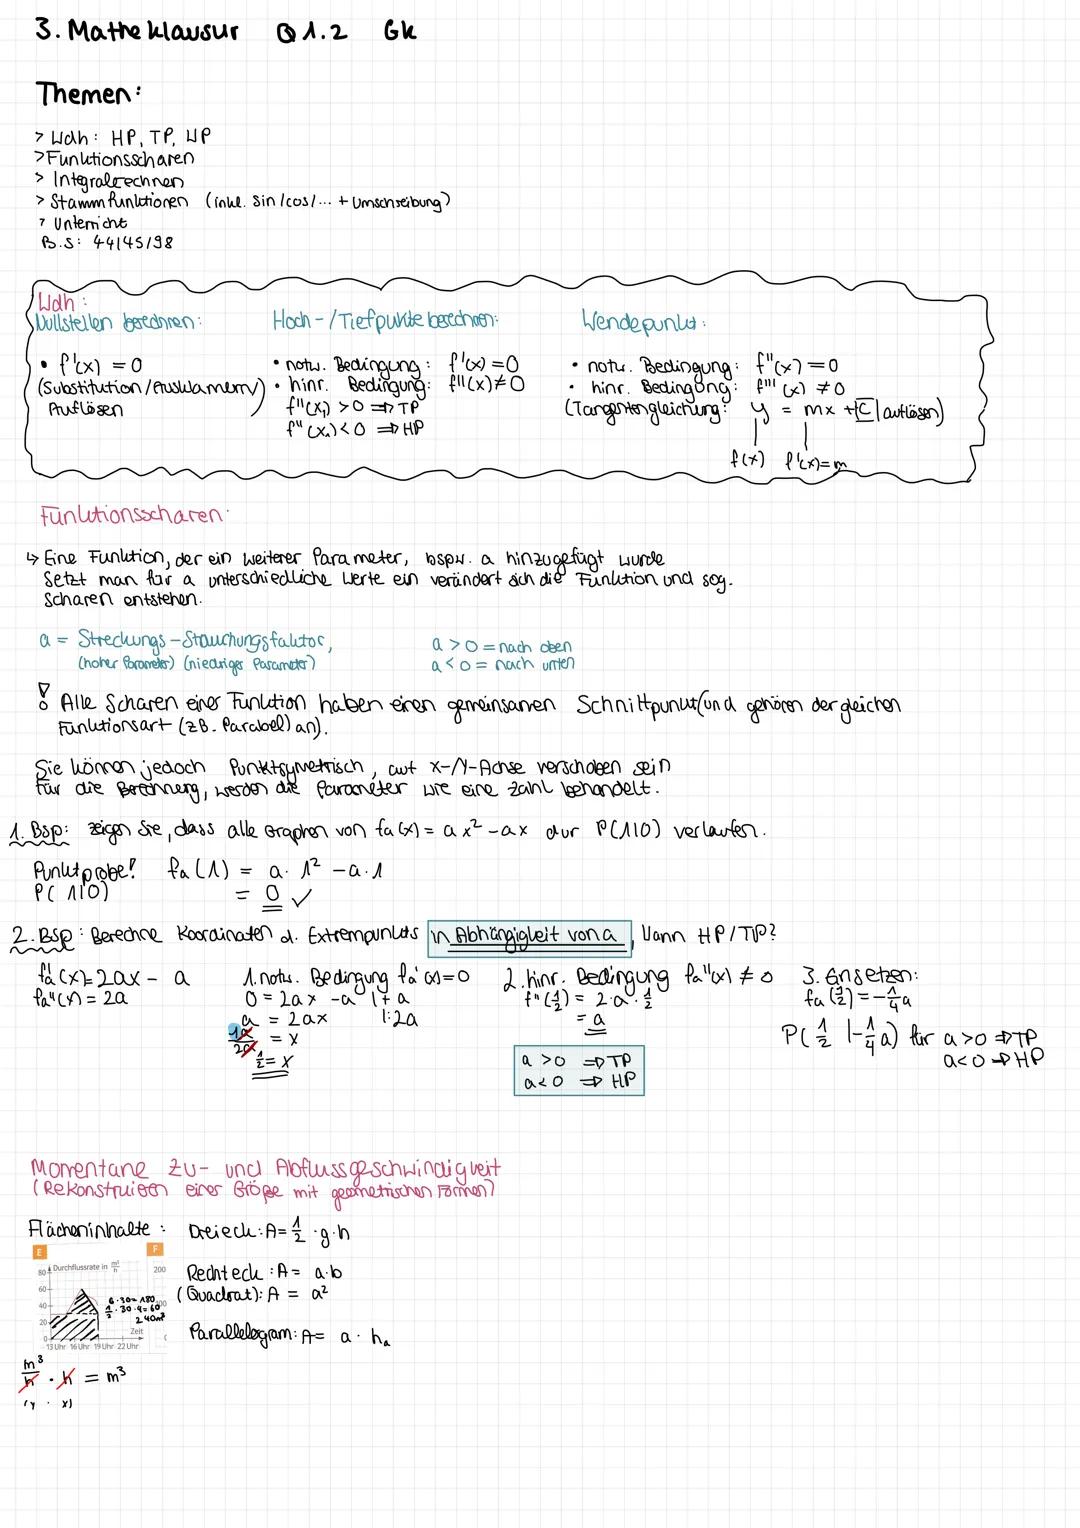 3. Matheklausur Q1.2 Gk
Themen:
> Wdh: HP, TP, WP
> Funktionsscharen
> Integralrechnen
> Stammfunktionen (inkl. Sin/cos/... + Umschreibung)
> Unterricht
B.S: 44/45/98
Wdh:
Nullstellen berechnen:
• f'(x) = 0
(Substitution/Ausklammern/
Auflösen
Hoch-/Tiefpunkte berechnen:
• notw. Bedingung: f'(x)=0
• hinr. Bedingung: f''(x)≠0
f''(x₁) >0 ⇒ TP
f''(x₁)<0 ⇒ HP
Wendepunkt:
• notw. Bedingung: f''(x)=0
• hinr. Bedingung: f'''(x) ≠0
(Tangentengleichung: y = mx + C | auflösen)
f(x) f'(x)=m
Funktionsscharen:
↳ Eine Funktion, der ein weiterer Parameter, bspw. a hinzugefügt wurde
Setzt man für a unterschiedliche Werte ein verändert sich die Funktion und sog.
Scharen entstehen.
a = Streckungs-Stauchungsfaktor,
(hoher Parameter) (niedriger Parameter)
a > 0 = nach oben
a < 0 = nach unten
! Alle Scharen einer Funktion haben einen gemeinsamen Schnittpunkt (und gehören der gleichen
Funktionsart (zB. Parabel) an).
Sie können jedoch Punktsymetrisch, auf x-/Y-Achse verschoben sein
Für die Berechnung, werden die Parameter wie eine Zahl behandelt.
1. Bsp: zeigen Sie, dass alle Graphen von fa(x) = ax² -ax dur P(1|0) verlaufen.
Punktprobe! fa(1) = a· 1² -a·1
P(1|0) = 0 ✓
2. Bsp: Berechne Koordinaten d. Extrempunkts in Abhängigkeit von a, Wann HP/TP?
fa'(x)=2ax - a
fa''(x) = 2a
1. notw. Bedingung fa'(x)=0
0 = 2ax -a |+a
a = 2ax |:2a
1a/2a = x
1/2 = x
2. hinr. Bedingung fa''(x) ≠ 0
f''(1/2) = 2·a·1/2
= a
a >0 ⇒ TP
a<0 ⇒ HP
3. Einsetzen:
fa(1/2) = -1/4a
P(1/2 | -1/4a) für a>0 ⇒TP
a<0 ⇒HP
Momentane Zu- und Abflussgeschwindigkeit
(Rekonstruieren einer Größe mit geometrischen Formen)
Flächeninhalte: Dreieck: A= 1/2 ·g·h
Rechteck: A= a·b
(Quadrat): A = a²
Parallelogram: A= a · hₐ
E F
Durchflussrate in m³/h
80
60
40
20
0
200
6·30=180
1/2·30·4=60
240m³
Zeit
13 Uhr 16 Uhr 19 Uhr 22 Uhr
m³/h · h = m³
(y · x)